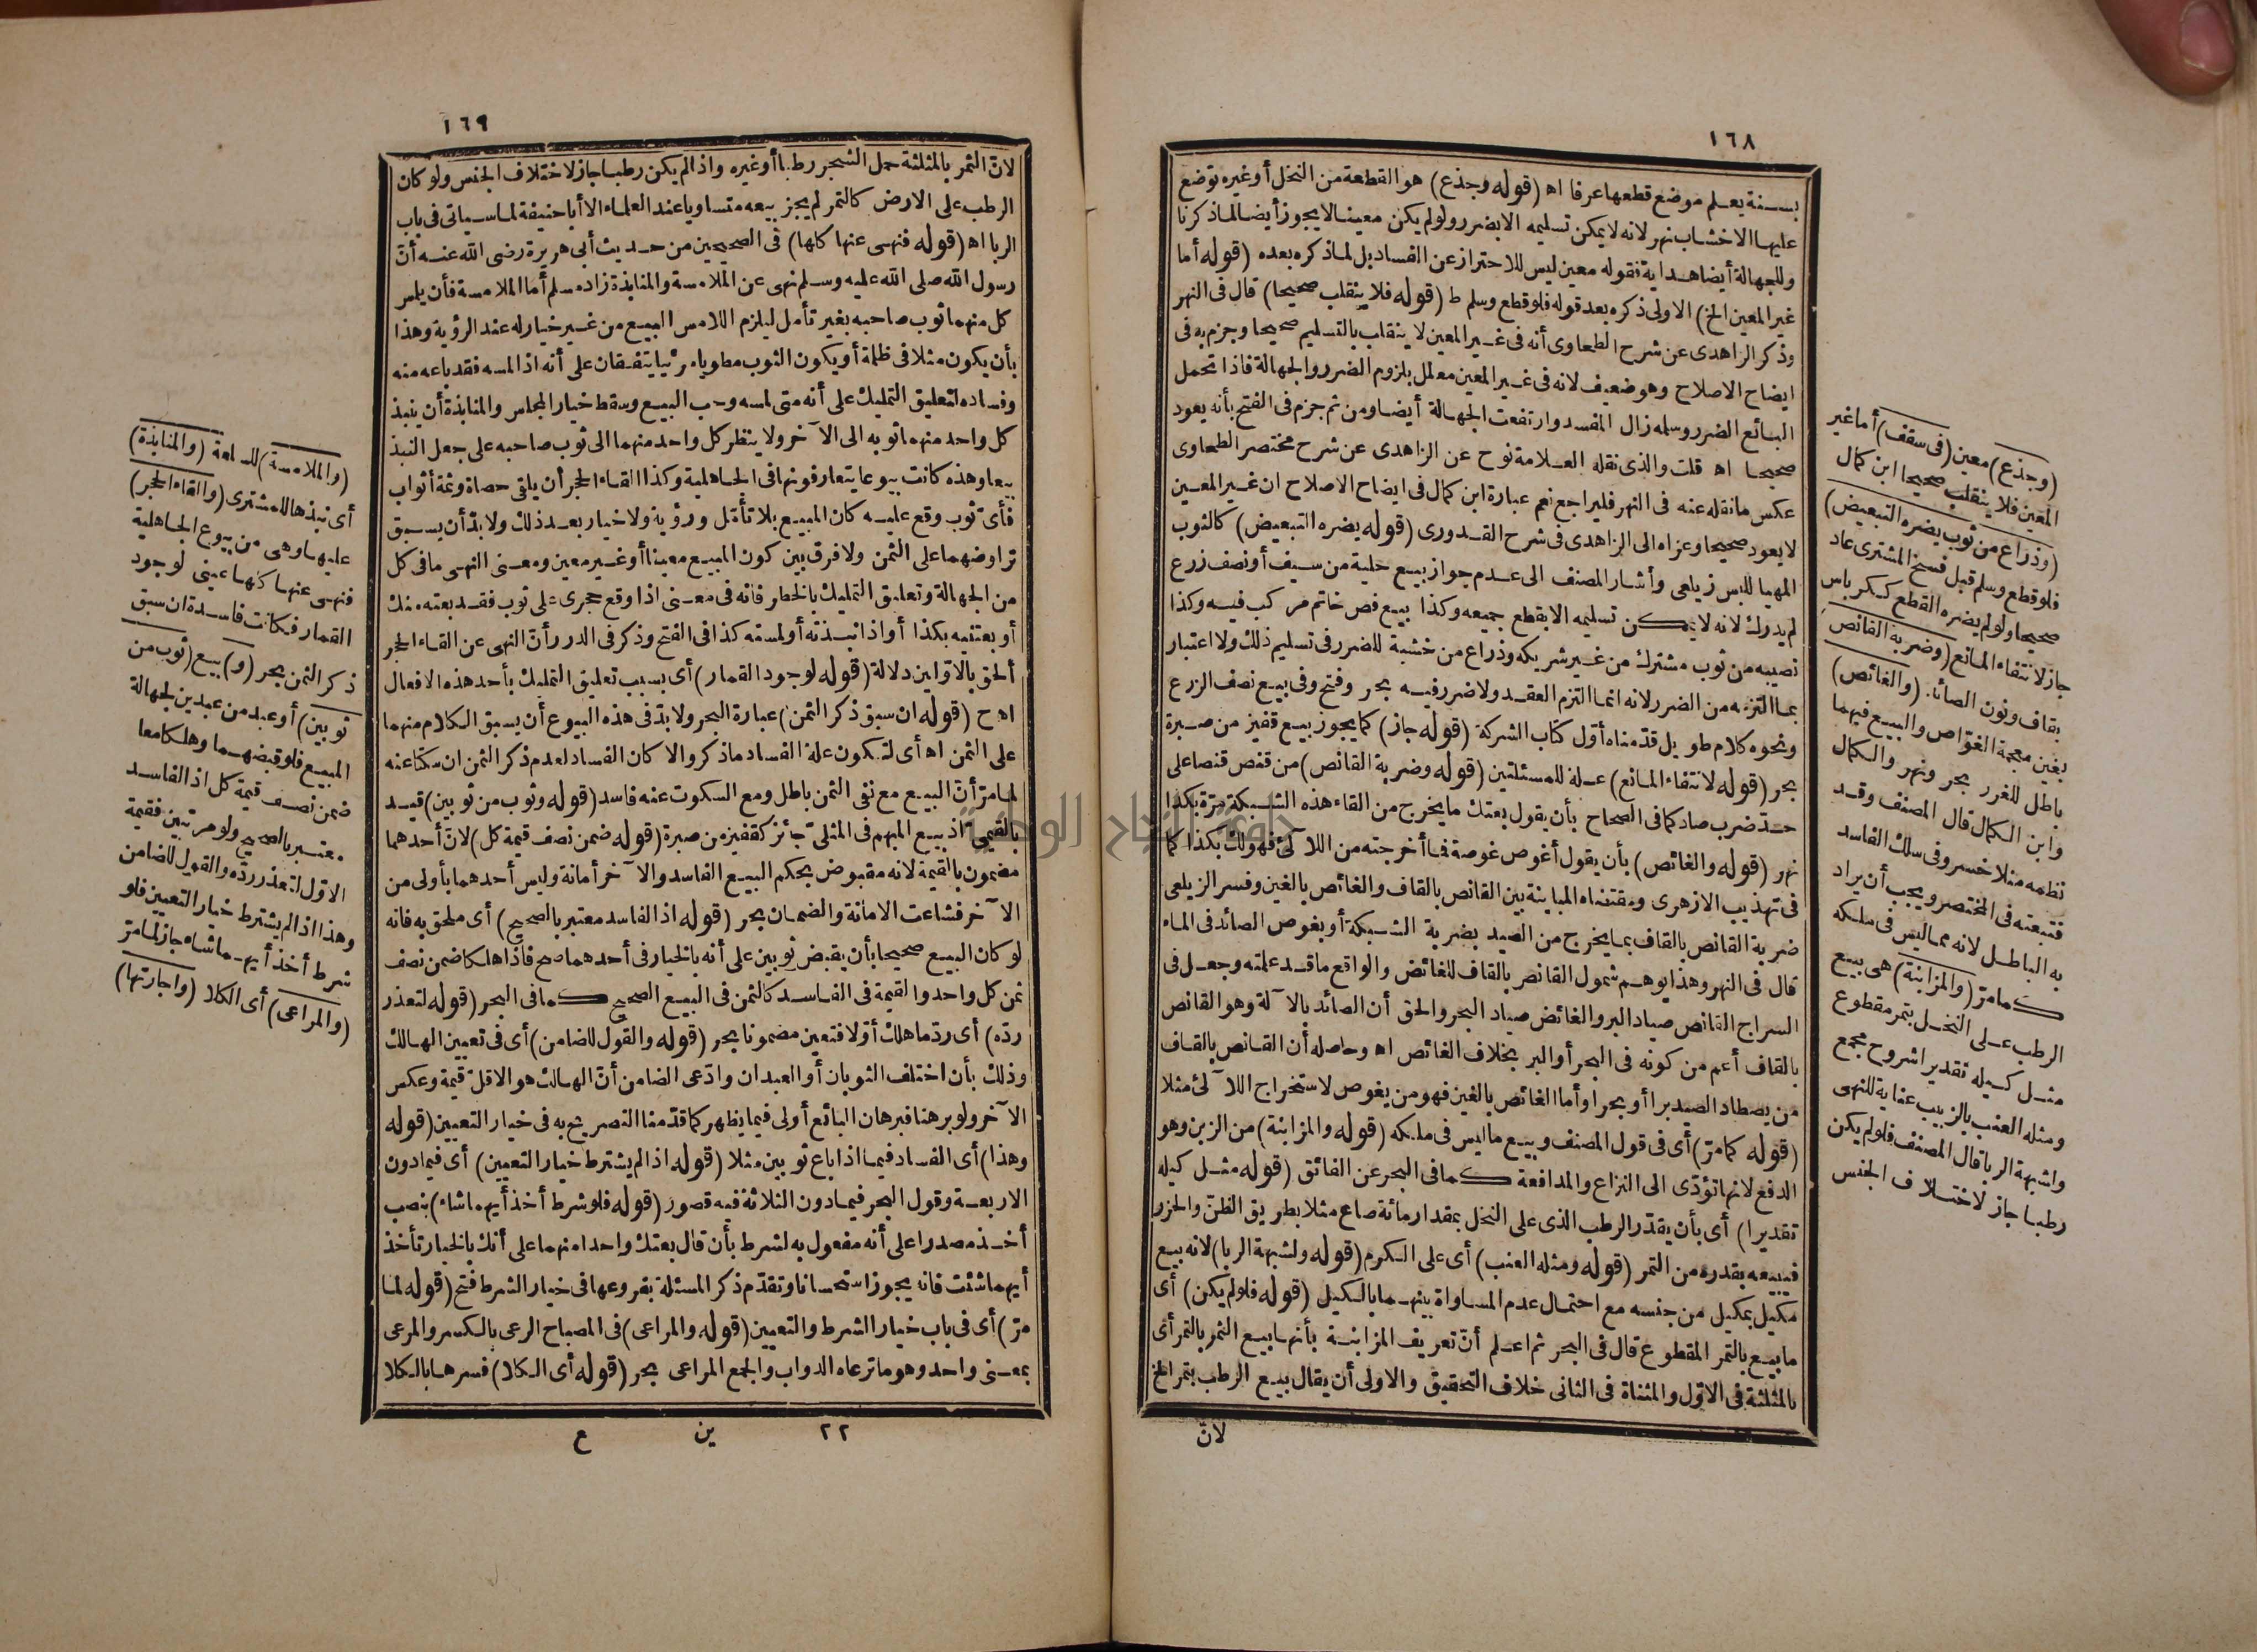 ١٦٨
بسنة يعلم موضع قطعها عرفا اه (قوله وجذع) هو القطعة من النخل أو غيره توضع
عليها الاخشاب نهر لانه لا يمكن تسليمه الا بضرر ولو لم يكن معينا لا يجوز أيضا لما ذكرنا
وللجهالة أيضا هداية فقوله معين ليس للاحتراز عن الفساد بل لما ذكره بعده (قوله أما
غير المعين الخ) الاولى ذكره بعد قوله فلو قطع وسلم ط (قوله فلا ينقلب صحيحا) قال فى النهر
وذكر الزاهدى عن شرح الطحاوى أنه فى غير المعين لا ينقلب بالتسليم صحيحا وجزم به فى
ايضاح الاصلاح وهو ضعيف لانه فى غير المعين معلل بلزوم الضرر والجهالة فاذا تحمل
البائع الضرر وسلمه زال المفسد وارتفعت الجهالة أيضا ومن ثم جزم فى الفتح بأنه يعود
صحيحا اه قلت والذى نقله العلامة نوح عن الزاهدى عن شرح مختصر الطحاوى
عكس ما نقله عنه فى النهر فليراجع نعم عبارة ابن كمال فى ايضاح الاصلاح ان غير المعين
لا يعود صحيحا وعزاه الى الزاهدى فى شرح القدورى (قوله يضره التبعيض) كالثوب
المهيا للبس زيلعى وأشار المصنف الى عدم جواز بيع حلية من سيف أو نصف زرع
لم يدرك لانه لا يمكن تسليمه الا بقطع جميعه وكذا بيع فص خاتم مركب فيه وكذا
نصيبه من ثوب مشترك من غير شريكه وذراع من خشبة للضرر فى تسليم ذلك ولا اعتبار
بما التزمه من الضرر لانه انما التزم العقد ولا ضرر فيه بحر وفتح وفى بيع نصف الزرع
ونحوه كلام طويل قدّمناه أوّل كتاب الشركة (قوله جاز) كما يجوز بيع قفيز من صبرة
بحر (قوله لانتفاء المانع) علة للمسئلتين (قوله وضربة القانص) من قنص قنصا على
حدّ ضرب صاد كما فى الصحاح بأن يقول بعتك ما يخرج من القاء هذه الشبكة مرّة بكذا
نهر (قوله والغائص) بأن يقول أغوص غوصة فما أخرجته من اللآلئ فهو لك بكذا كما
فى تهذيب الازهرى ومقتضاه المباينة بين القانص بالقاف والغائص بالغين وفسر الزيلعى
ضربة القانص بالقاف بما يخرج من الصيد بضربة الشبكة أو بغوص الصائد فى الماء
قال فى النهر وهذا يوهم شمول القانص بالقاف للغائض والواقع ما قد علمته وجعل فى
السراج القانص صياد البر والغائض صياد البحر والحق أن الصائد بالآلة وهو القانص
بالقاف أعم من كونه فى البحر أو البر بخلاف الغائص اه وحاصله أن القانص بالقاف
من يصطاد الصيد برا أو بحرا وأما الغائص بالغين فهو من يغوص لاستخراج اللآلئ مثلا
(قوله كما مرّ) أى فى قول المصنف وبيع ما ليس فى ملكه (قوله والمزابنة) من الزبن وهو
الدفع لانها تؤدّى الى النزاع والمدافعة كما فى البحر عن الفائق (قوله مثل كيله
تقديرا) أى بأن يقدّر الرطب الذى على النخل بمقدار مائة صاع مثلا بطريق الظنّ والحزر
فيبيعه بقدره من التمر (قوله ومثله العنب) أى على الكرم (قوله ولشبهة الربا) لانه بيع
مكيل بمكيل من جنسه مع احتمال عدم المساواة بينهما بالكيل (قوله فلو لم يكن) أى
ما بيع بالتمر المقطوع قال فى البحر ثم اعلم أنّ تعريف المزابنة بأنها بيع الثمر بالتمر أى
بالمثلثة فى الاوّل والمثناة فى الثانى خلاف التحقيق والاولى أن يقال بيع الرطب بتمر الخ
لانّ
(وجذع) معين (فى سقف) أما غير
المعين فلا ينقلب صحيحا ابن كمال
(وذراع من ثوب يضره التبعيض)
فلو قطع وسلم قبل فسخ المشترى عاد
صحيحا ولو لم يضره القطع ككرباس
جاز لانتفاء المانع (وضربة القانص)
بقاف ونون الصائد (والغائص)
بغين معجمة الغوّاص والبيع فيهما
باطل للغرر بحر ونهر والكمال
وابن الكمال قال المصنف وقد
نظمه منلا خسرو فى سلك الفاسد
فتبعته فى المختصر ويجب أن يراد
به الباطل لانه مما ليس فى ملكه
كما مرّ (والمزابنة) هى بيع
الرطب على النخل بتمر مقطوع
مثل كيله تقديرا شروح مجمع
ومثله العنب بالزبيب عناية للنهى
ولشبهة الربا قال المصنف فلو لم يكن
رطبا جاز لاختلاف الجنس
١٦٩
لانّ الثمر بالمثلثة حمل الشجر رطبا أو غيره واذا لم يكن رطبا جاز لاختلاف الجنس ولو كان
الرطب على الارض كالتمر لم يجز بيعه متساويا عند العلماء الا أبا حنيفة لما سيأتى فى باب
الربا اه (قوله فنهى عنها كلها) فى الصحيحين من حديث أبى هريرة رضى الله عنه أنّ
رسول الله صلى الله عليه وسلم نهى عن الملامسة والمنابذة زاد مسلم أما الملامسة فأن يلمس
كل منهما ثوب صاحبه بغير تأمل ليلزم اللامس البيع من غير خيار له عند الرؤية وهذا
بأن يكون مثلا فى ظلمة أو يكون الثوب مطويا مرئيا يتفقان على أنه اذا لمسه فقد باعه منه
وفساده لتعليق التمليك على أنه متى لمسه وجب البيع وسقط خيار المجلس والمنابذة أن ينبذ
كل واحد منهما ثوبه الى الآخر ولا ينظر كل واحد منهما الى ثوب صاحبه على جعل النبذ
بيعا وهذه كانت بيوعا يتعارفونها فى الجاهلية وكذا القاء الحجر أن يلقى حصاة وثمة أثواب
فأىّ ثوب وقع عليه كان المبيع بلا تأمّل ورؤية ولا خيار بعد ذلك ولا بدّ أن يسبق
تراوضهما على الثمن ولا فرق بين كون المبيع معينا أو غير معين ومعنى النهى ما فى كل
من الجهالة وتعليق التمليك بالخطر فانه فى معنى اذا وقع حجرى على ثوب فقد بعته منك
أو بعتنيه بكذا أو اذا نبذته أو لمسته كذا فى الفتح وذكر فى الدرر أنّ النهى عن القاء الحجر
ألحق بالاوّلين دلالة (قوله لوجود القمار) أى بسبب تعليق التمليك بأحد هذه الافعال
اه ح (قوله ان سبق ذكر الثمن) عبارة البحر ولا بدّ فى هذه البيوع أن يسبق الكلام منهما
على الثمن اه أى لتكون علة الفساد ما ذكر والا كان الفساد لعدم ذكر الثمن ان سكتا عنه
لما مرّ أنّ البيع مع نفى الثمن باطل ومع السكوت عنه فاسد (قوله وثوب من ثوبين) قيد
بالقيمىّ اذ بيع المبهم فى المثلىّ جائز كقفيز من صبرة (قوله ضمن نصف قيمة كل) لانّ أحدهما
مضمون بالقيمة لانه مقبوض بحكم البيع الفاسد والآخر أمانة وليس أحدهما بأولى من
الآخر فشاعت الامانة والضمان بحر (قوله اذ الفاسد معتبر بالصحيح) أى ملحق به فانه
لو كان البيع صحيحا بأن يقبض ثوبين على أنه بالخيار فى أحدهما صح فاذا هلكا ضمن نصف
ثمن كل واحد والقيمة فى الفاسد كالثمن فى البيع الصحيح كما فى البحر (قوله لتعذر
ردّه) أى ردّ ما هلك أوّلا فتعين مضمونا بحر (قوله والقول للضامن) أى فى تعيين الهالك
وذلك بأن اختلف الثوبان أو العبدان وادّعى الضامن أنّ الهالك هو الاقلّ قيمة وعكس
الآخر ولو برهنا فبرهان البائع أولى فيما يظهر كما قدّمنا التصريح به فى خيار التعيين (قوله
وهذا) أى الفساد فيما اذا باع ثوبين مثلا (قوله اذا لم يشترط خيار التعيين) أى فيما دون
الاربعة وقول البحر فيما دون الثلاثة فيه قصور (قوله فلو شرط أخذ أيهما شاء) بنصب
أخذ مصدرا على أنه مفعول به لشرط بأن قال بعتك واحدا منهما على أنك بالخيار تأخذ
أيهما شئت فانه يجوز استحسانا وتقدّم ذكر المسئلة بفروعها فى خيار الشرط فتح (قوله لما
مرّ) أى فى باب خيار الشرط والتعيين (قوله والمراعى) فى المصباح الرعى بالكسر والمرعى
بمعنى واحد وهو ما ترعاه الدواب والجمع المراعى بحر (قوله أى الكلا) فسرها بالكلا
٢٢ ين ع
(والملامسة) للسلعة (والمنابذة)
أى نبذها للمشترى (والقاء الحجر)
عليها وهى من بيوع الجاهلية
فنهى عنها كلها عينى لوجود
القمار فكانت فاسدة ان سبق
ذكر الثمن بحر (و) بيع (ثوب من
ثوبين) أو عبد من عبدين لجهالة
المبيع فلو قبضهما وهلكا معا
ضمن نصف قيمة كل اذ الفاسد
معتبر بالصحيح ولو مرتبين فقيمة
الاوّل لتعذر ردّه والقول للضامن
وهذا اذا لم يشترط خيار التعيين فلو
شرط أخذ أيهما شاء جاز لما مرّ
(والمراعى) أى الكلا (واجارتها)
جامعة النجاح الوطنية